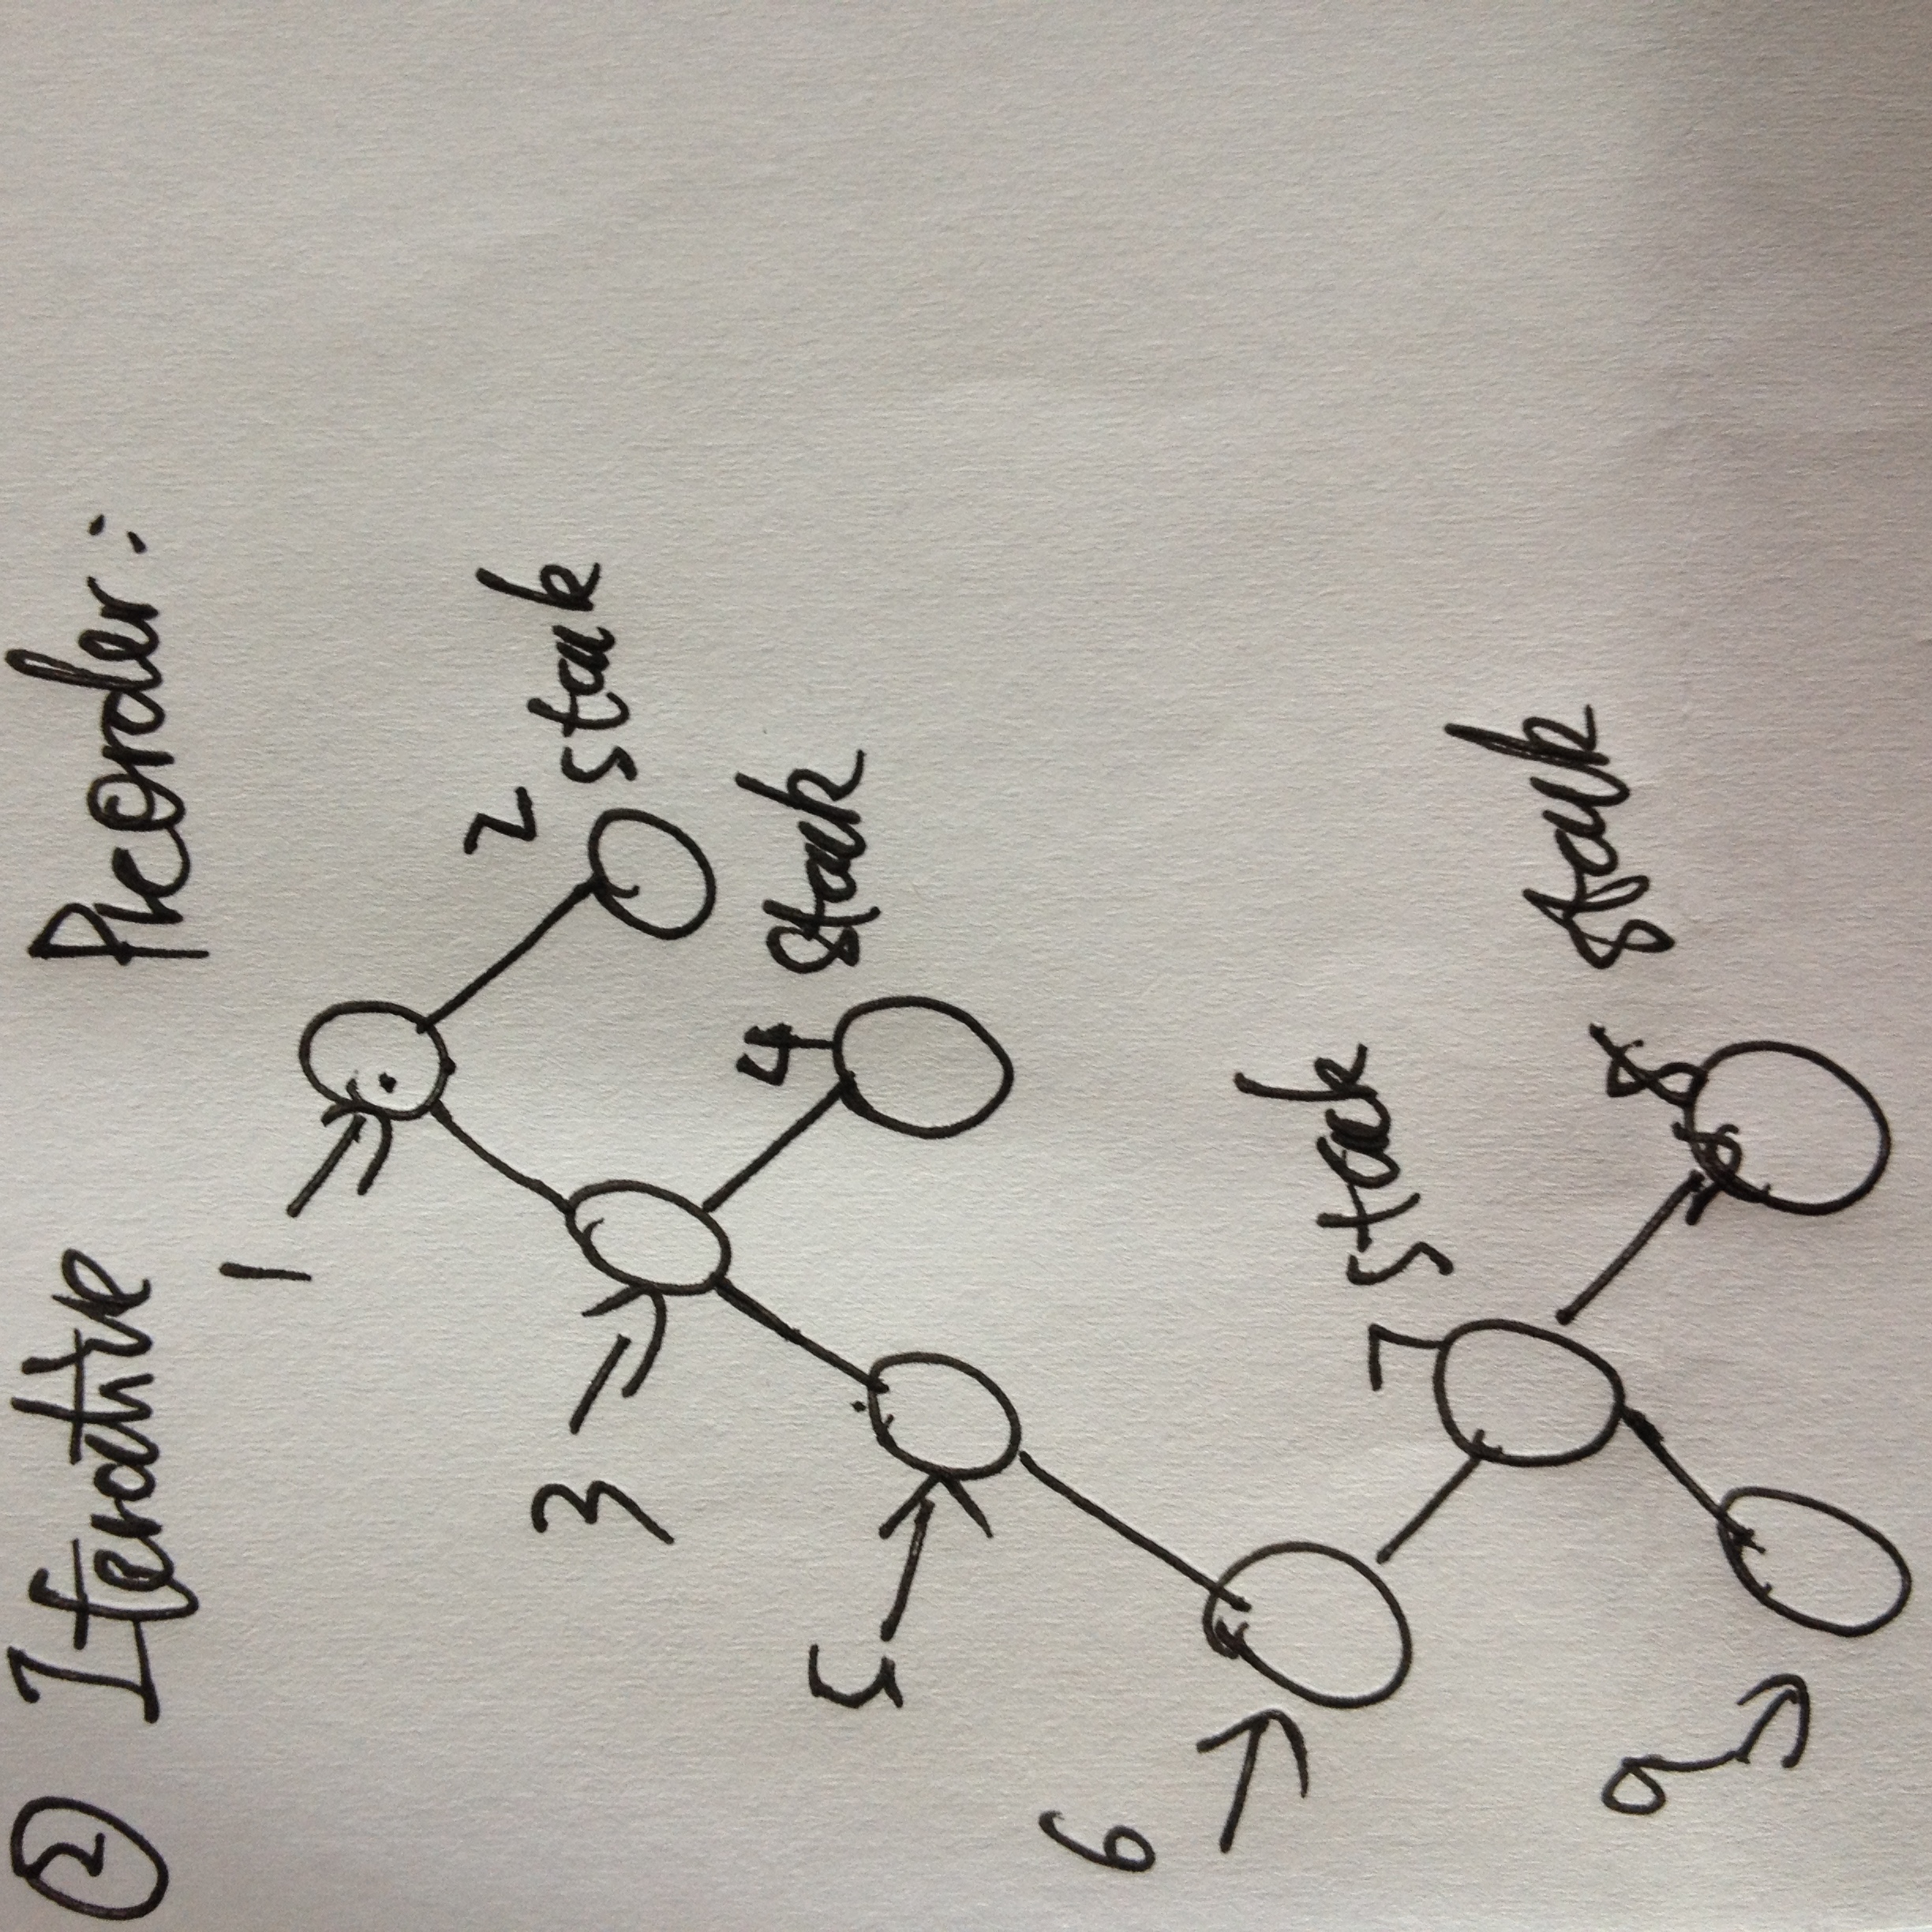 ② Iterative Preorder:
1
2
stack
3
4 stack
5
6
7 stack
8 stack
9